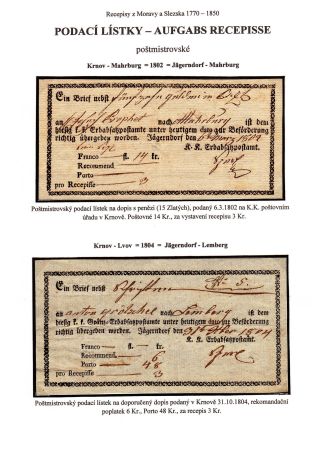 Recepisy z Moravy a Slezska 1770 – 1850
PODACÍ LÍSTKY – AUFGABS RECEPISSE
poštmistrovské
Krnov - Mahrburg = 1802 = Jägerndorf - Mahrburg
Ein Brief nebst fünfzehn gulden in
an Joseph nach Mahrburg ist dem
hiesig k. k. Erbabsatzpostamt unter heutigem dato zur Beförderung
richtig übergeben worden. Jägerndorf den 6 März 1802
Franco — fl. 14 kr. K. K. Erbabsatzpostamt.
Recommend.
Porto —
pro Recepisse 3
Poštmistrovský podací lístek na dopis s penězi (15 Zlatých), podaný 6.3.1802 na K.K. poštovním
úřadu v Krnově. Poštovné 14 Kr., za vystavení recepisu 3 Kr.
Krnov - Lvov = 1804 = Jägerndorf - Lemberg
Ein Brief nebst No. 5.
an anton nach Lemberg ist dem
hiesig k. k. Erbabsatzpostamt unter heutigem dato zur Beförderung
richtig übergeben worden. Jägerndorf den 31 1804
Franco — fl. kr. K. K. Erbabsatzpostamt.
Recommend. 6
Porto — 48
pro Recepisse 3
Poštmistrovský podací lístek na doporučený dopis podaný v Krnově 31.10.1804, rekomandační
poplatek 6 Kr., Porto 48 Kr., za recepis 3 Kr.